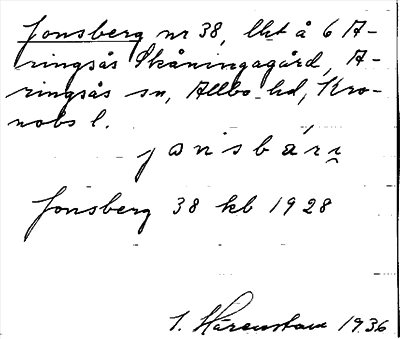 Jonsberg nr 38, lht å 6 A-
ringsås Skåningagård, A-
ringsås sn, Allbo hd, Kro-
nobs l.
jonsbäri
Jonsberg 38 kb 1928
1936